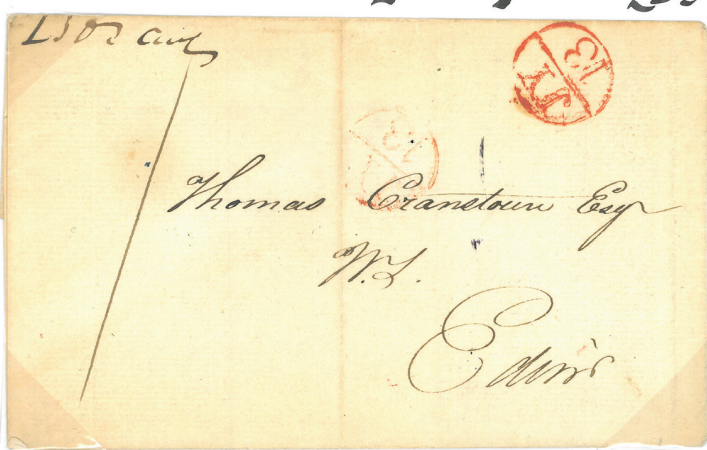 13
JY
13
Thomas Cranstoun Esqr
W.S.
Edinr